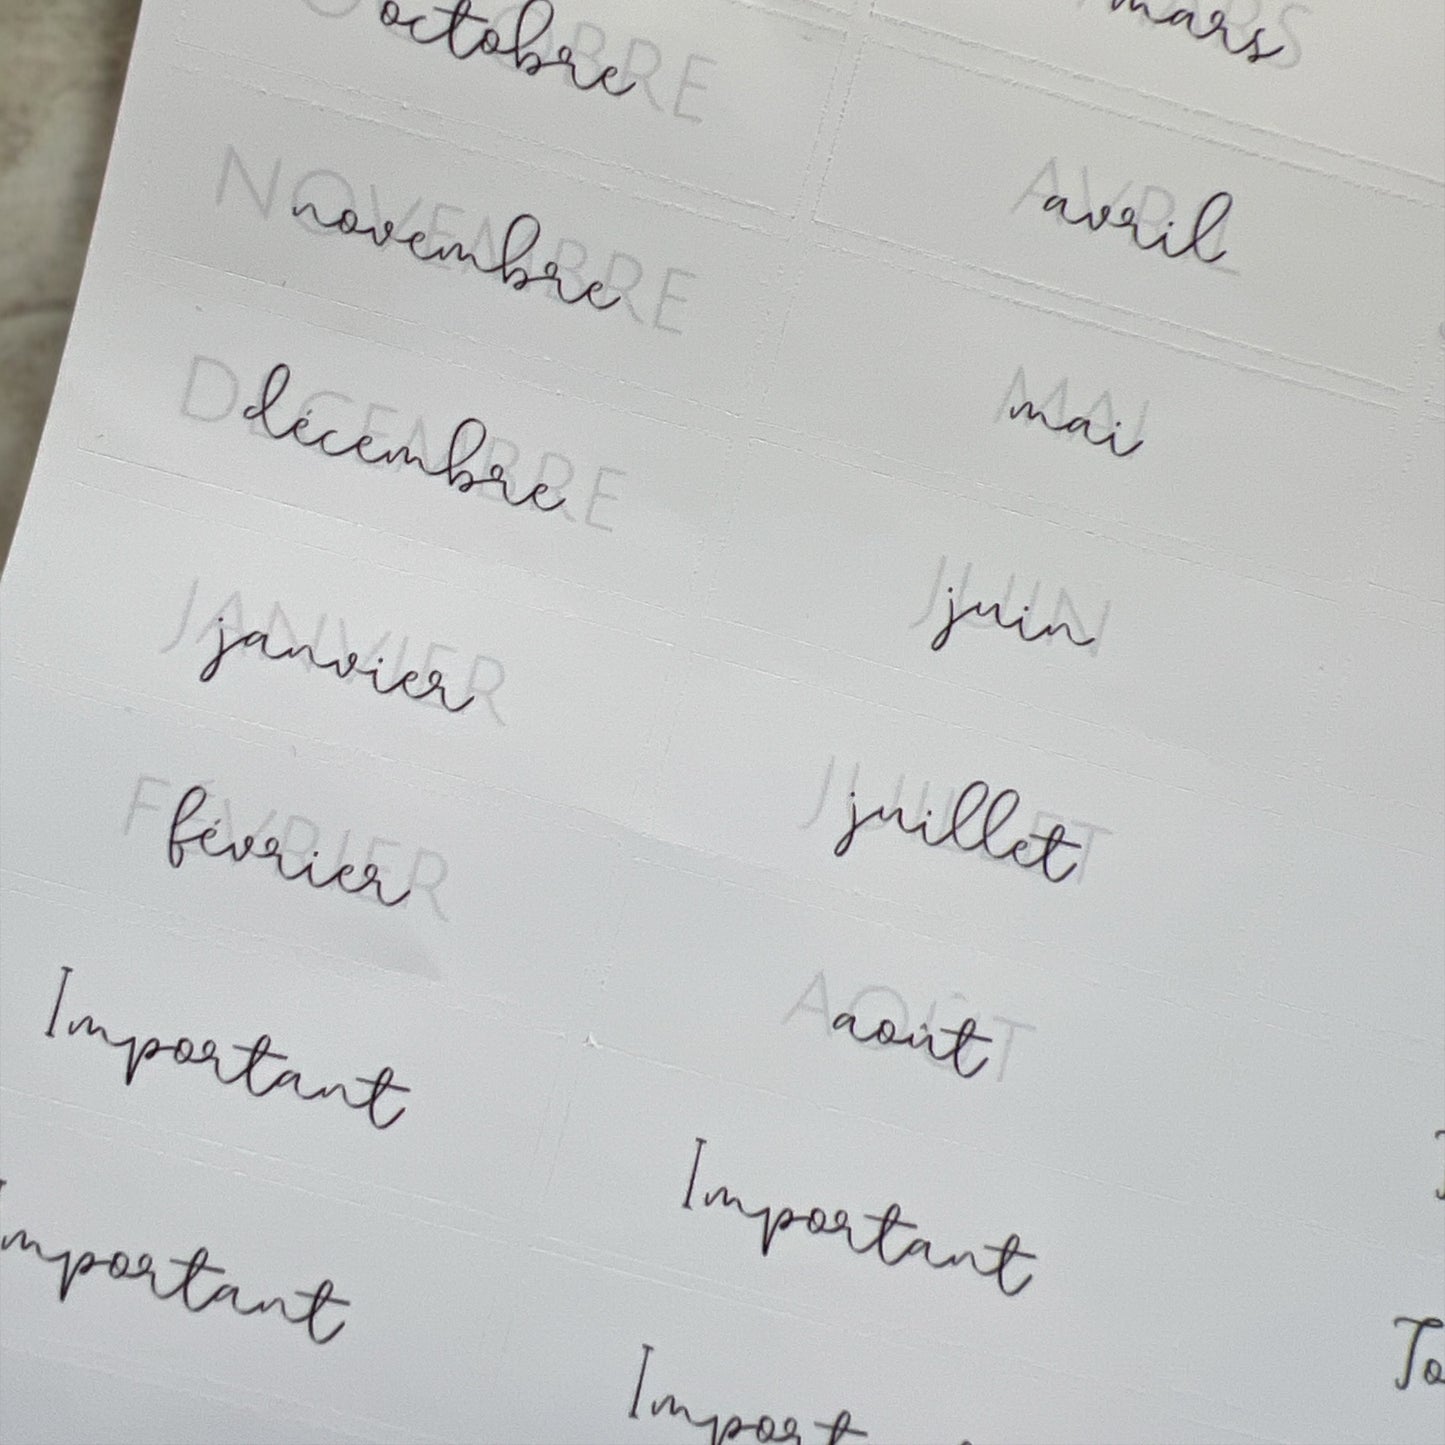 OCTOBRE
octobre
NOVEMBRE
novembre
DÉCEMBRE
décembre
JANVIER
janvier
FÉVRIER
février
Important
Important
MARS
mars
AVRIL
avril
MAI
mai
JUIN
juin
JUILLET
juillet
AOÛT
août
Important
Important